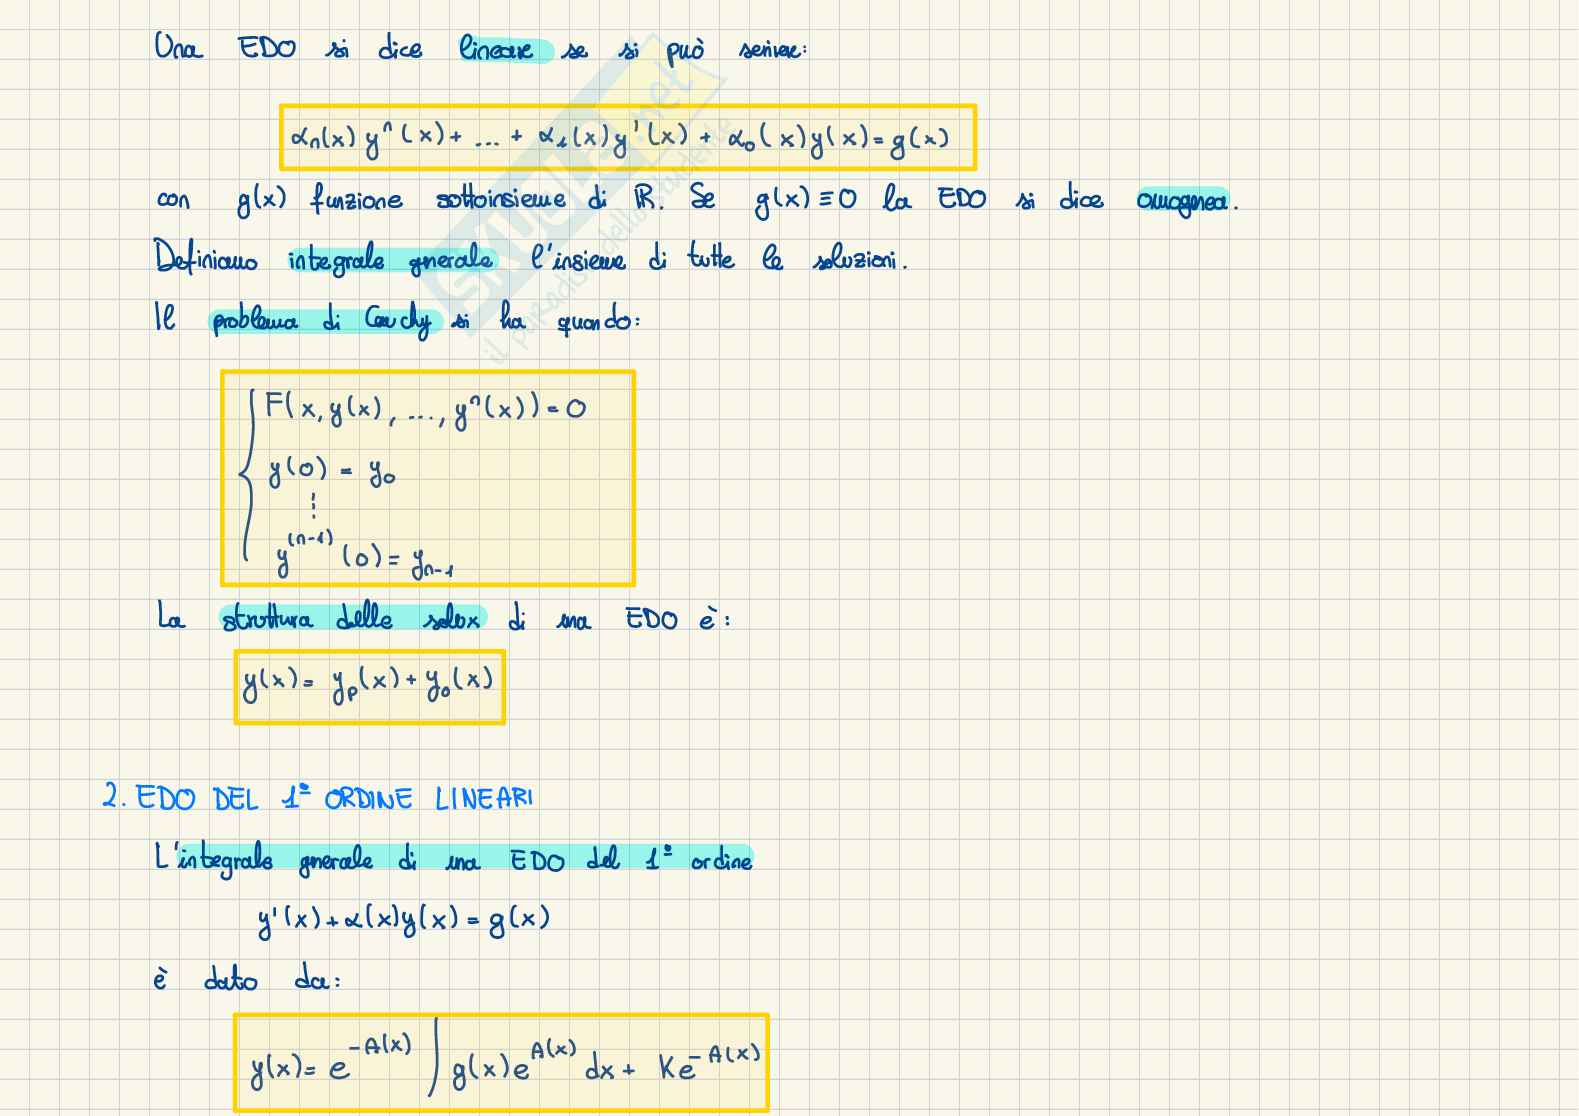 Una EDO si dice lineare se si può scrivere:
αₙ(x) yⁿ(x) + ... + α₁(x) y'(x) + α₀(x) y(x) = g(x)
con g(x) funzione sottoinsieme di ℝ. Se g(x) ≡ 0 la EDO si dice omogenea.
Definiamo integrale generale l'insieme di tutte le soluzioni.
Il problema di Cauchy si ha quando:
{ F(x, y(x), ..., yⁿ(x)) = 0
y(0) = y₀
⋮
y⁽ⁿ⁻¹⁾(0) = yₙ₋₁
La struttura delle soluz di una EDO è:
y(x) = yₚ(x) + y₀(x)
2. EDO DEL 1º ORDINE LINEARI
L'integrale generale di una EDO del 1º ordine
y'(x) + α(x) y(x) = g(x)
è dato da:
y(x) = e^{-A(x)} ∫ g(x) e^{A(x)} dx + K e^{-A(x)}
SKUOLA.net
il paradiso dello studente